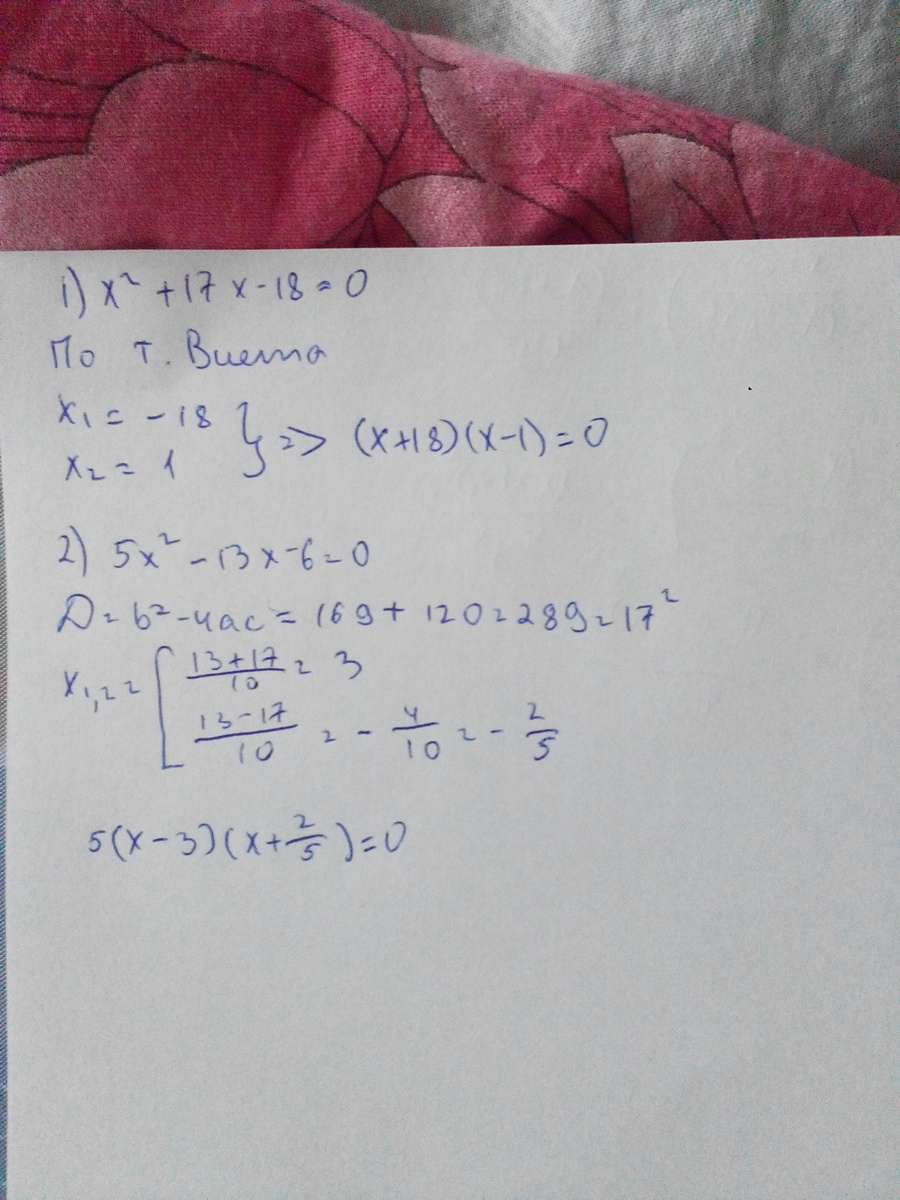 1) x² + 17x - 18 = 0
По т. Виета
x₁ = - 18
x₂ = 1
} => (x+18)(x-1) = 0
2) 5x² - 13x - 6 = 0
D = b² - 4ac = 169 + 120 = 289 = 17²
x₁,₂ = [ 13+17/10 = 3
13-17/10 = - 4/10 = - 2/5
5(x-3)(x+2/5) = 0